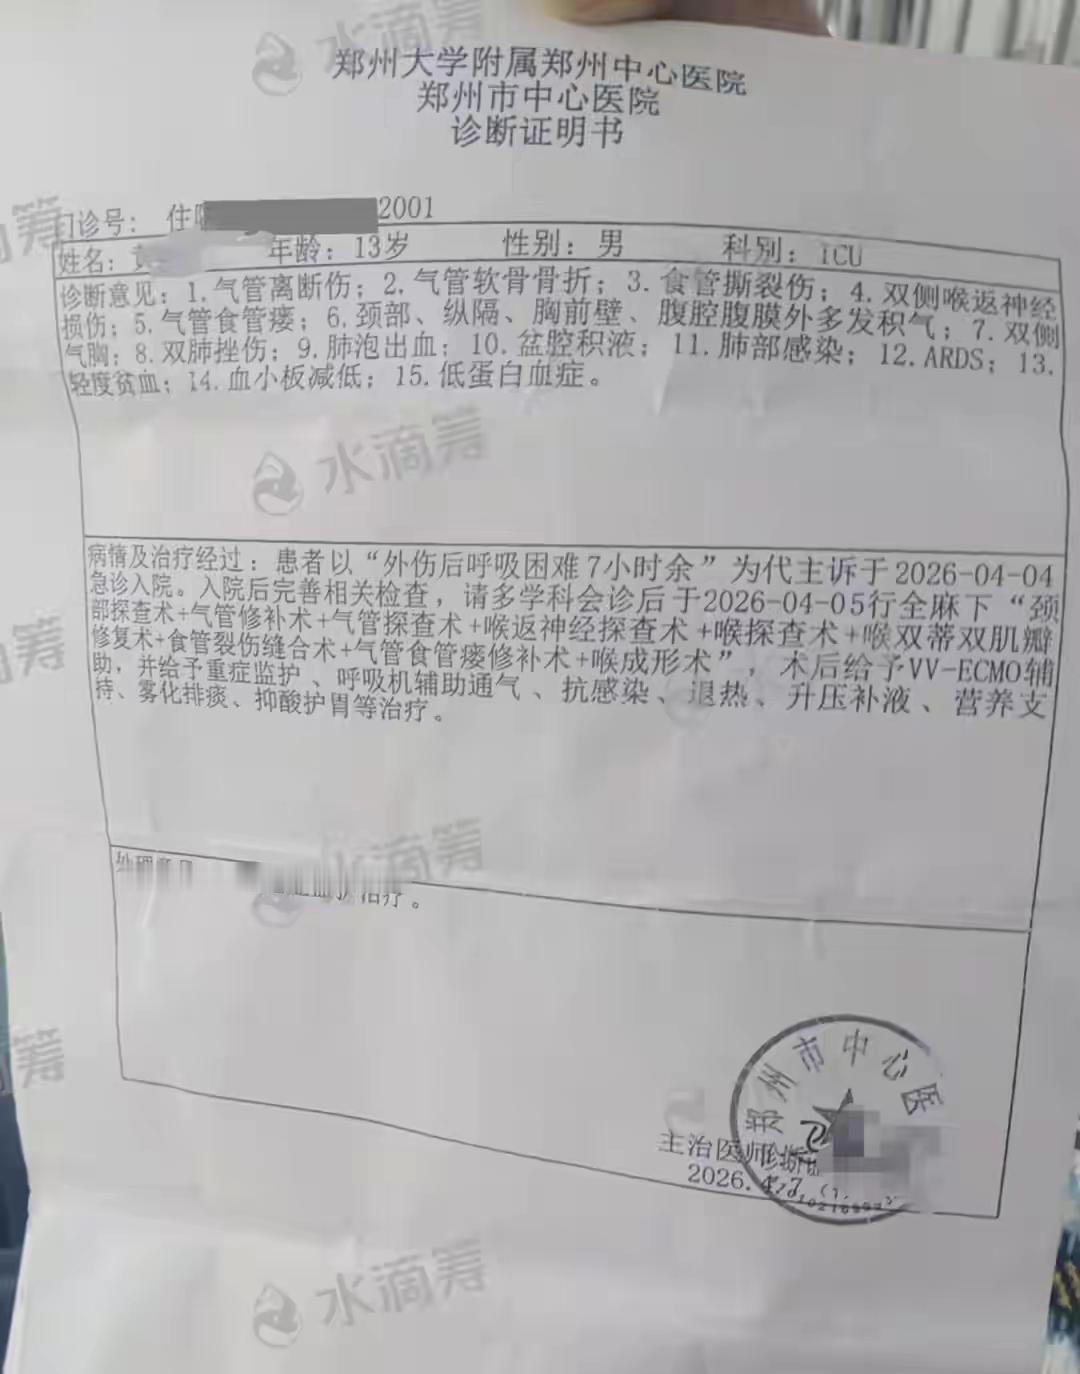 水滴筹
郑州大学附属郑州中心医院
郑州市中心医院
诊断证明书
门诊号： 住 2001
姓名：黄 年龄：13岁 性别：男 科别：ICU
诊断意见：1.气管离断伤；2.气管软骨骨折；3.食管撕裂伤；4.双侧喉返神经
损伤；5.气管食管瘘；6.颈部、纵隔、胸前壁、腹腔腹膜外多发积气；7.双侧
气胸；8.双肺挫伤；9.肺泡出血；10.盆腔积液；11.肺部感染；12.ARDS；13.
轻度贫血；14.血小板减低；15.低蛋白血症。
水滴筹
病情及治疗经过：患者以“外伤后呼吸困难7小时余”为代主诉于2026-04-04
急诊入院。入院后完善相关检查，请多学科会诊后于2026-04-05行全麻下“颈
部探查术+气管修补术+气管探查术+喉返神经探查术+喉探查术+喉双蒂双肌瓣
修复术+食管裂伤缝合术+气管食管瘘修补术+喉成形术”，术后给予VV-ECMO辅
助，并给予重症监护、呼吸机辅助通气、抗感染、退热、升压补液、营养支
持、雾化排痰、抑酸护胃等治疗。
水滴筹
治疗。
郑州市中心医
主治医师
2026.4.7
水滴筹